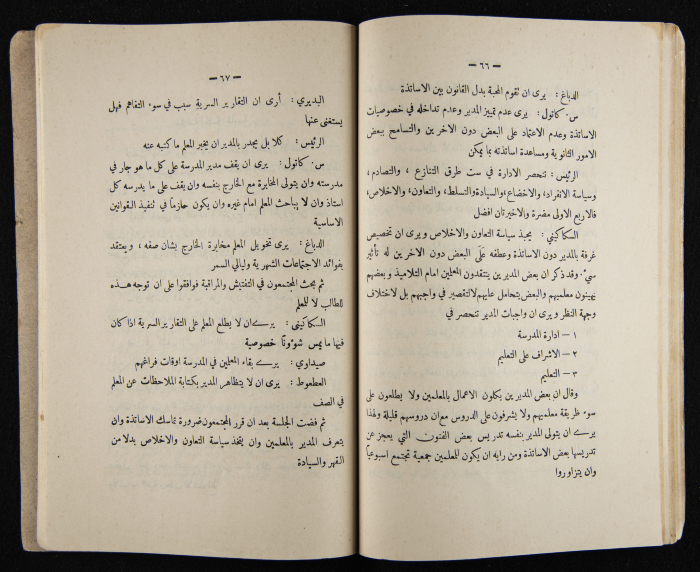 — ٦٦ —
الدباغ: يرى ان تقوم المحبة بدل القانون بين الاساتذة
س. كاتول: يرى عدم تمييز المدير وعدم تداخله في خصوصيات
الاساتذة وعدم الاعتماد على البعض دون الآخرين والتسامح ببعض
الامور الثانوية ومساعدة اساتذته بما يمكن
الرئيس: تنحصر الادارة في ست طرق التنازع، والتصادم،
وسياسة الانفراد، والاخضاع، والسيادة والتسلط، والتعاون، والاخلاص،
فالاربع الاولى مضرة والاخيرتان افضل
السكاكيني: يحبذ سياسة التعاون والاخلاص ويرى ان تخصيص
غرفة بالمدير دون الاساتذة وعطفه على البعض دون الآخرين له تأثير
سيء. وقد ذكر ان بعض المديرين ينتقدون المعلمين امام التلاميذ وبعضهم
يهينون معلميهم والبعض يتحامل عليهم لا لتقصير في واجبهم بل لاختلاف
وجهة النظر ويرى ان واجبات المدير تنحصر في
١ — ادارة المدرسة
٢ — الاشراف على التعليم
٣ — التعليم
وقال ان بعض المديرين يكلون الاعمال بالمعلمين ولا يطلعون على
سوء طريقة معلميهم ولا يشرفون على الدروس مع ان دروسهم قليلة ولهذا
يرى ان يتولى المدير بنفسه تدريس بعض الفنون التي يعجز عن
تدريسها بعض الاساتذة ومن رايه ان يكون للمعلمين جمعية تجتمع اسبوعياً
وان يتزاوروا
— ٦٧ —
البديري: أرى ان التقارير السرية سبب في سوء التفاهم فهل
يستغنى عنها
الرئيس: كلا بل يجدر بالمدير ان يخبر المعلم ما كتبه عنه
س. كاتول: يرى ان يقف مدير المدرسة على كل ما هو جار في
مدرسته وان يتولى المخابرة مع الخارج بنفسه وان يقف على ما يدرسه كل
استاذ وان لا يباحث المعلم امام غيره وان يكون حازماً في تنفيذ القوانين
الاساسية
الدباغ: يرى تخويل المعلم مخابرة الخارج بشان صفه، ويعتقد
بفوائد الاجتماعات الشهرية وليالي السمر
ثم بحث المجتمعون في التفتيش والمراقبة فوافقوا على ان توجه هذه
للطالب لا للمعلم
السكاكيني: يرى ان لا يطلع المعلم على التقارير السرية اذا كان
فيها ما يمس شؤوناً خصوصية
صيداوي: يرى بقاء المعلمين في المدرسة اوقات فراغهم
العطعوط: يرى ان لا يتظاهر المدير بكتابة الملاحظات عن المعلم
في الصف
ثم فضت الجلسة بعد ان قرر المجتمعون ضرورة تماسك الاساتذة وان
يتعرف المدير بالمعلمين وان يتخذ سياسة التعاون والاخلاص بدلا من
القهر والسيادة